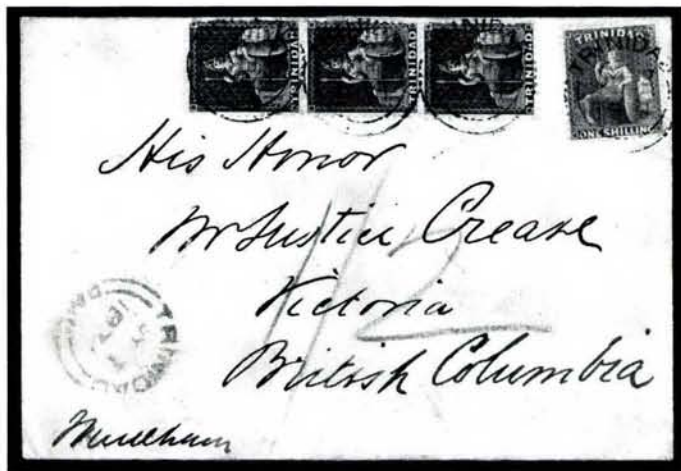 TRINIDAD TRINIDAD TRINIDAD TRINIDAD
ONE SHILLING
TRINIDAD
His Honor
Mr Justice Crease
Victoria
British Columbia
1/2
TRINIDAD